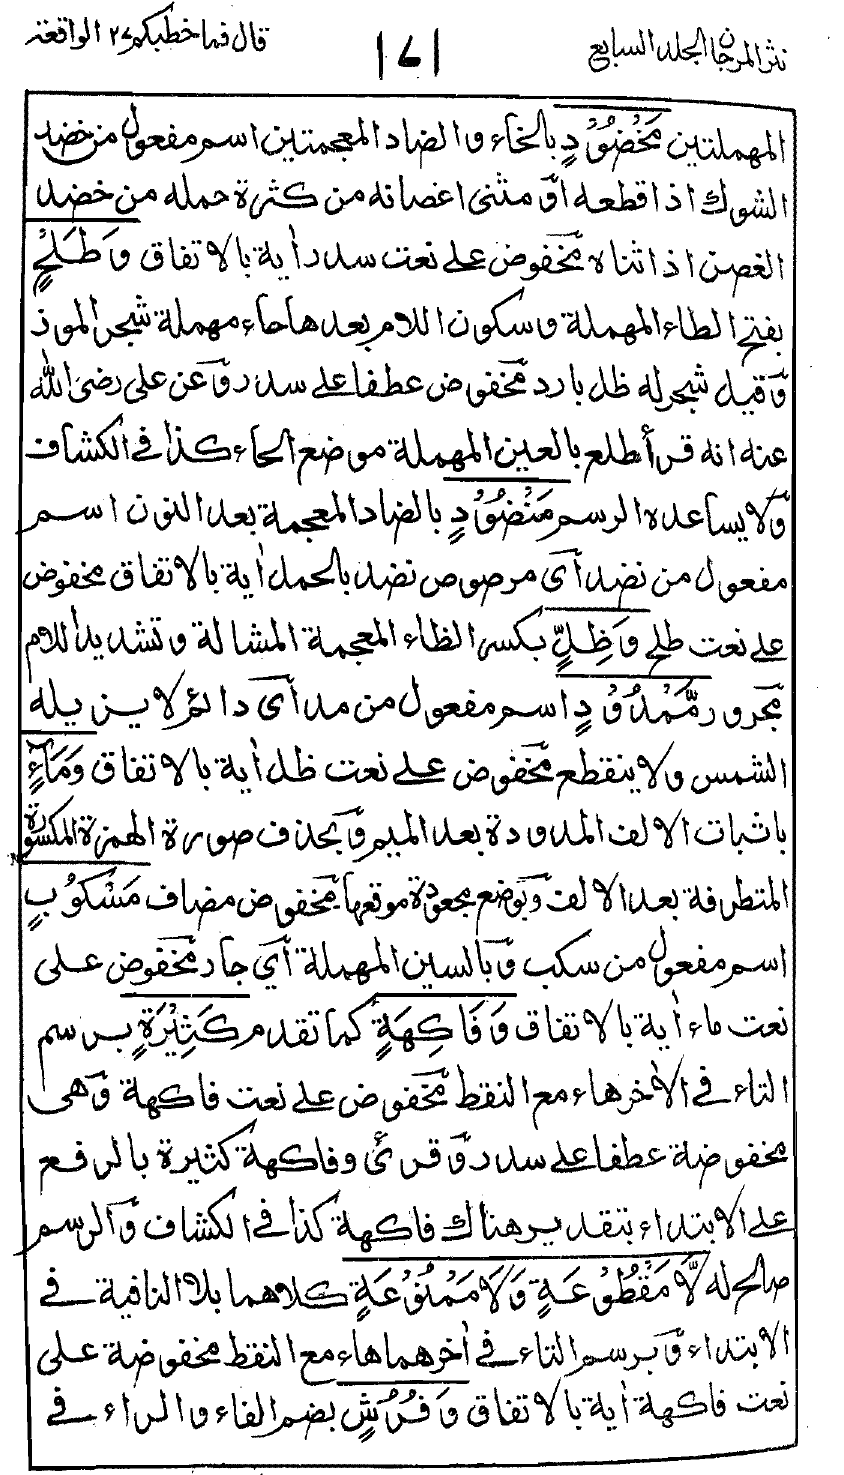 نثر المرجان الجلد السابع
١٧١
قال فما خطبكم ٢٧ الواقعة
المهملتين مَخْضُوْدٍ بالخاء والضاد المعجمتين اسم مفعول من خضد
الشوك اذا قطعه اوْ مثنى اغصانه من كثرة حمله من خضد
الغصن اذا ثناه مخفوض على نعت سدر اٰية بالاتفاق وَطَلْحٍ
بفتح الطاء المهملة وسكون اللام بعدها حاء مهملة شجر الموز
وقيل شجر له ظل بارد مخفوض عطفا على سدر وعن على رضى الله
عنه انه قرأ طلع بالعين المهملة موضع الحاء كذا فى الكشاف
ولا يساعده الرسم مَنْضُوْدٍ بالضاد المعجمة بعد النون اسم
مفعول من نضد اى مرصوص نضد بالحمل اٰية بالاتفاق مخفوض
على نعت طلح وَظِلٍّ بكسر الظاء المعجمة المشالة وتشديد اللام
مجرور مَّمْدُوْدٍ اسم مفعول من مد اى دائم لا يزيله
الشمس ولا ينقطع مخفوض على نعت ظل اٰية بالاتفاق وَمَآءٍ
باثبات الالف المدودة بعد الميم وبحذف صورة الهمزة المكسورة
المتطرفة بعد الالف وبوضع مجعودة موقعها مخفوض مضاف مَسْكُوْبٍ
اسم مفعول من سكب وبالسين المهملة اى جار مخفوض على
نعت ماء اٰية بالاتفاق وَفَاكِهَةٍ كما تقدم كَثِيْرَةٍ برسم
التاء فى الاٰخر هاء مع النقط مخفوض على نعت فاكهة وهى
مخفوضة عطفا على سدر وقرئ وفاكهة كثيرة بالرفع
على الابتداء بتقدير هناك فاكهة كذا فى الكشاف والرسم
صالح له لَّا مَقْطُوْعَةٍ وَلَا مَمْنُوْعَةٍ كلاهما بلا النافية فى
الابتداء وبرسم التاء فى اٰخرهما هاء مع النقط مخفوضة على
نعت فاكهة اٰية بالاتفاق وَفُرُشٍ بضم الفاء والراء فى